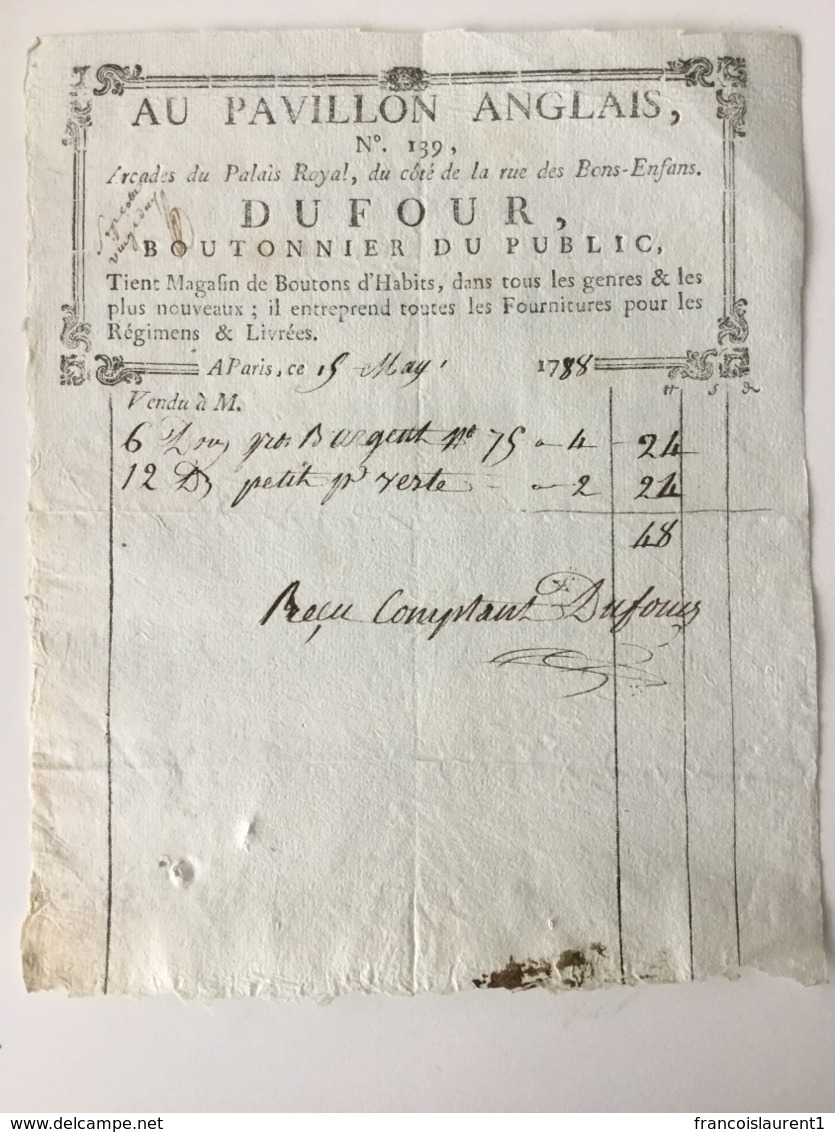 AU PAVILLON ANGLAIS,
N°. 139,
Arcades du Palais Royal, du côté de la rue des Bons-Enfans.
DUFOUR,
BOUTONNIER DU PUBLIC,
Tient Magaſin de Boutons d'Habits, dans tous les genres & les
plus nouveaux ; il entreprend toutes les Fournitures pour les
Régimens & Livrées.
A Paris, ce 15 May 1788
Vendu à M.
6 gros B argent N° 75 a 4 24
12 petit verte a 2 24
48
Reçu Comptant Dufour
delcampe.net
francoislaurent1